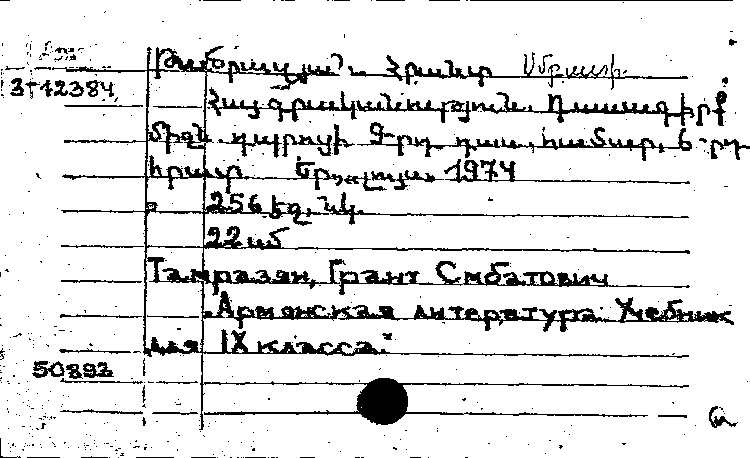 Թամրազյան Հրանտ Սմբատի
3-12384
Հայ գրականություն. Դասագիրք
միջն. դպրոցի 9-րդ դաս. համար. 6-րդ
հրատ. Եր., «Լույս» 1974
256 էջ, նկ.
22 սմ
Тамразян, Грант Смбатович
"Армянская литература. Учебник
для IX класса."
50892